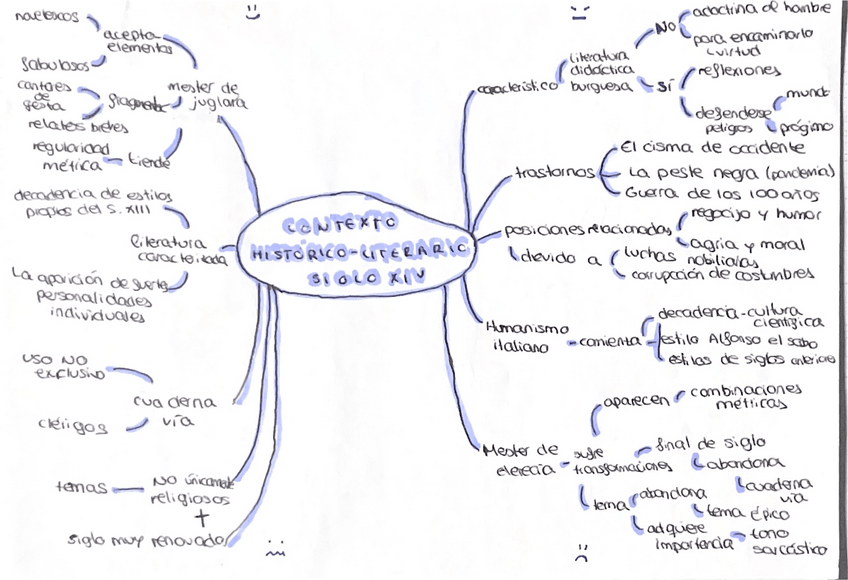 CONTEXTO
HISTÓRICO-LITERARIO
SIGLO XIV
mester de
juglaría
acepta
elementos
novelescos
fabulosos
fragmenta
cantares
de
gesta
relatos breves
tiende
regularidad
métrica
literatura
caracterizada
decadencia de estilos
propios del S. XIII
La aparición de fuertes
personalidades
individuales
cuaderna
vía
USO NO
exclusivo
clérigos
temas
NO únicamente
religiosos
+
siglo muy renovado
característico
literatura
didáctica
burguesa
NO
adoctrina al hombre
para encaminarlo
virtud
SÍ
reflexiones
defenderse
peligros
mundo
prógimo
trastornos
El cisma de occidente
La peste negra (pandemia)
Guerra de los 100 años
posiciones relacionadas
regocijo y humor
agria y moral
devido a
luchas
nobiliarias
corrupción de costumbres
Humanismo
italiano
comienza
decadencia-cultura
científica
estilo Alfonso el sabio
estilos de siglos anteriores
Mester de
clerecía
sufre
transformaciones
aparecen
combinaciones
métricas
final de siglo
abandona
cuaderna
vía
tema
abandona
tema épico
adquiere
importancia
tono
sarcástico